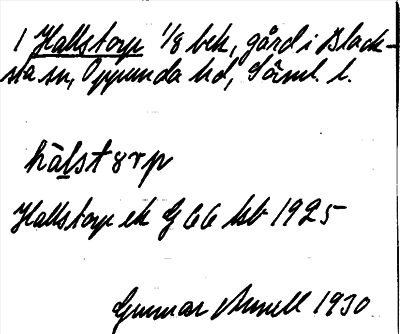 1 Hallstorp 1/8 bek, gård i Black-
sta sn, Oppunda hd, Sörml. l.
hälstɵrp
Hallstorp ek G 66 hsb 1925
Gunnar 1930